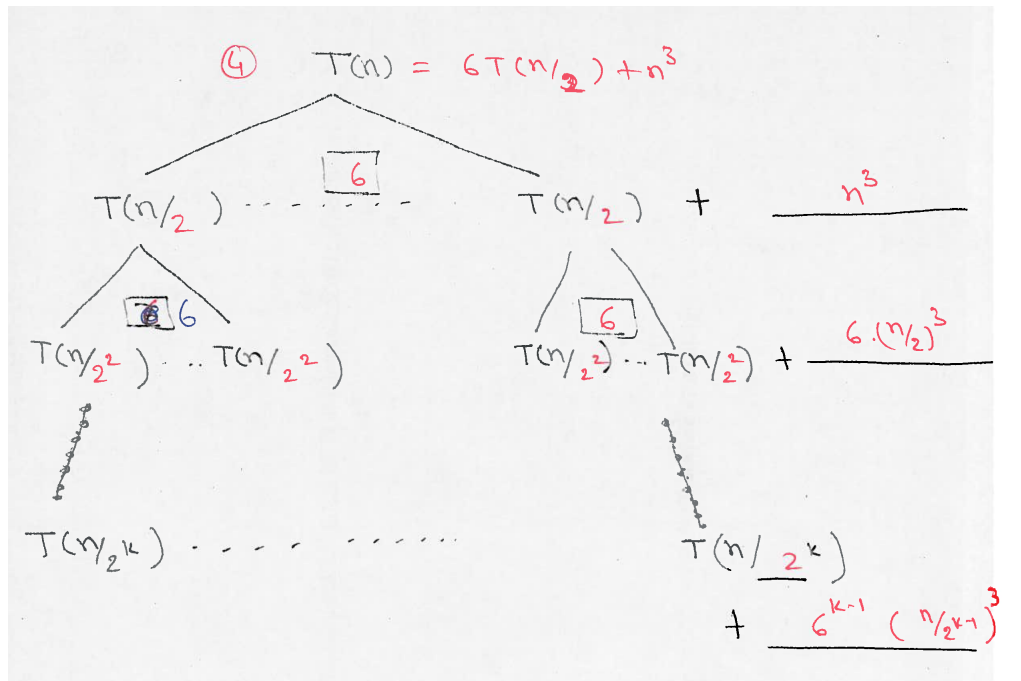 ④ T(n) = 6T(n/2) + n³
6
T(n/2) ........ T(n/2) + n³
6 6
T(n/2²) ... T(n/2²) T(n/2²) ... T(n/2²) + 6·(n/2)³
T(n/2ᵏ) .... ...... T(n/2ᵏ)
+ 6ᵏ⁻¹ (n/2ᵏ⁻¹)³